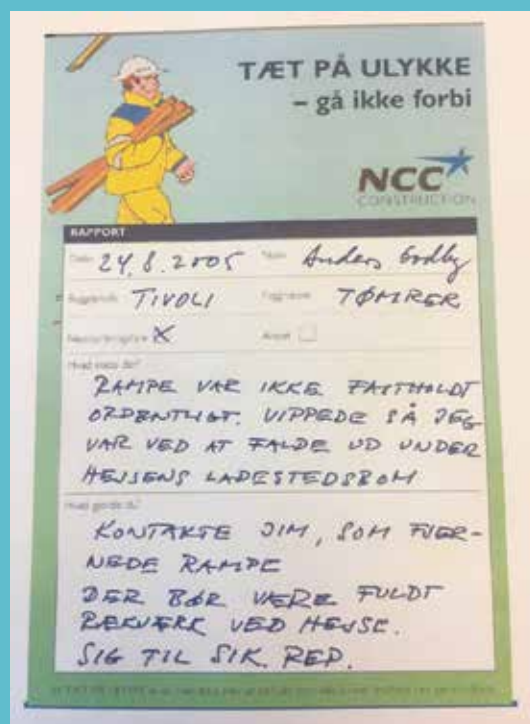 TÆT PÅ ULYKKE
– gå ikke forbi
NCC
CONSTRUCTION
RAPPORT
Dato 24.8.2005 Navn Anders
TIVOLI Faggruppe TØMRER
X Andet
Hvad skete der?
RAMPE VAR IKKE FASTHOLDT
ORDENTLIGT. VIPPEDE SÅ JEG
VAR VED AT FALDE UD UNDER
HEJSENS LADESTEDSBOM
Hvad gjorde du?
KONTAKTE JIM, SOM FJER-
NEDE RAMPE
DER BØR VÆRE FULDT
REKVÆRK VED HEJSE.
SIG TIL SIK. REP.